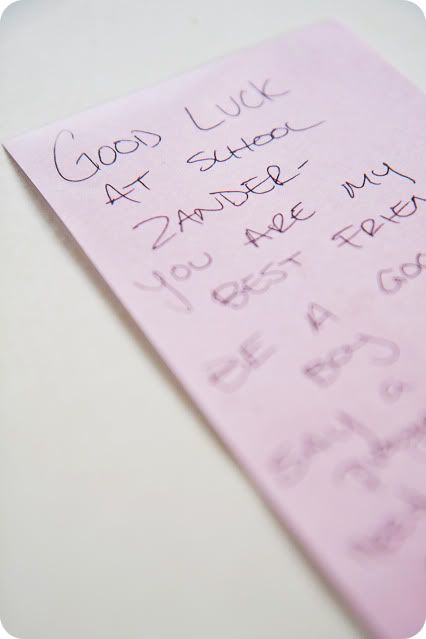 GOOD LUCK
AT SCHOOL
ZANDER-
YOU ARE MY
BEST FRIEN
BE A GOO
BOY
SAY a